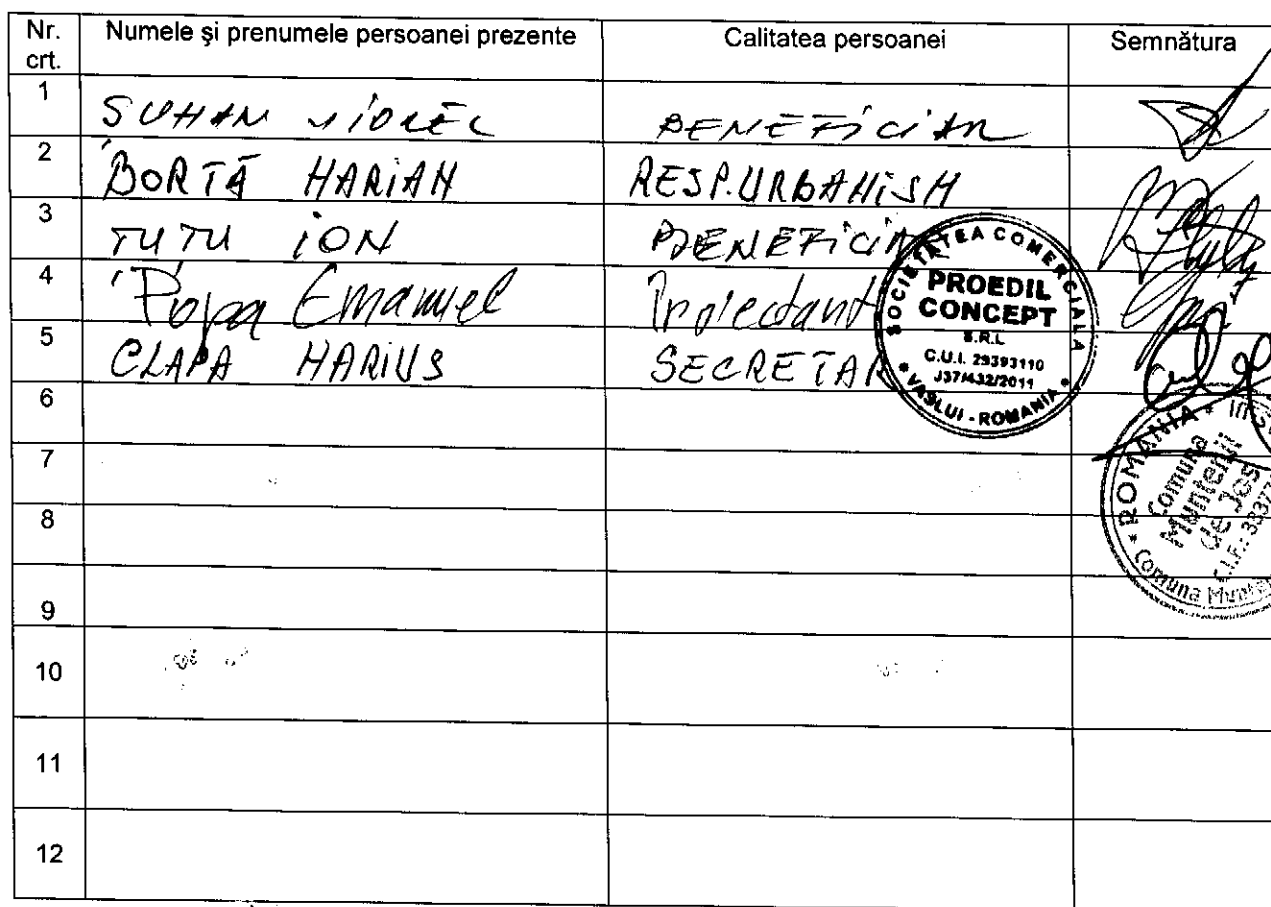 Nr. crt. Numele şi prenumele persoanei prezente Calitatea persoanei Semnătura
1 SUHAN VIOREL BENEFICIAR
2 BORTĂ MARIAN RESP. URBANISM
3 TUTU ION BENEFICIAR
4 Popa Emanuel Proiectant
5 CLAPA MARIUS SECRETAR
6
7
8
9
10
11
12
SOCIETATEA COMERCIALA
PROEDIL
CONCEPT
S.R.L
C.U.I. 29393110
J37/432/2011
* VASLUI - ROMANIA *
* ROMANIA *
Comuna
Muntenii
de Jos
C.I.F.:
Comuna